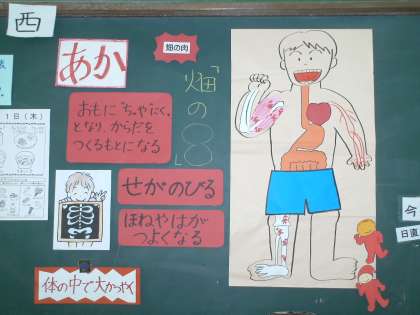 西
あか
畑の肉
「畑の
8」
おもに「ちゃにく」
となり、からだを
つくるもとになる
せがのびる
ほねやはが
つよくなる
体の中で大かつやく
1日(木)
今
日直